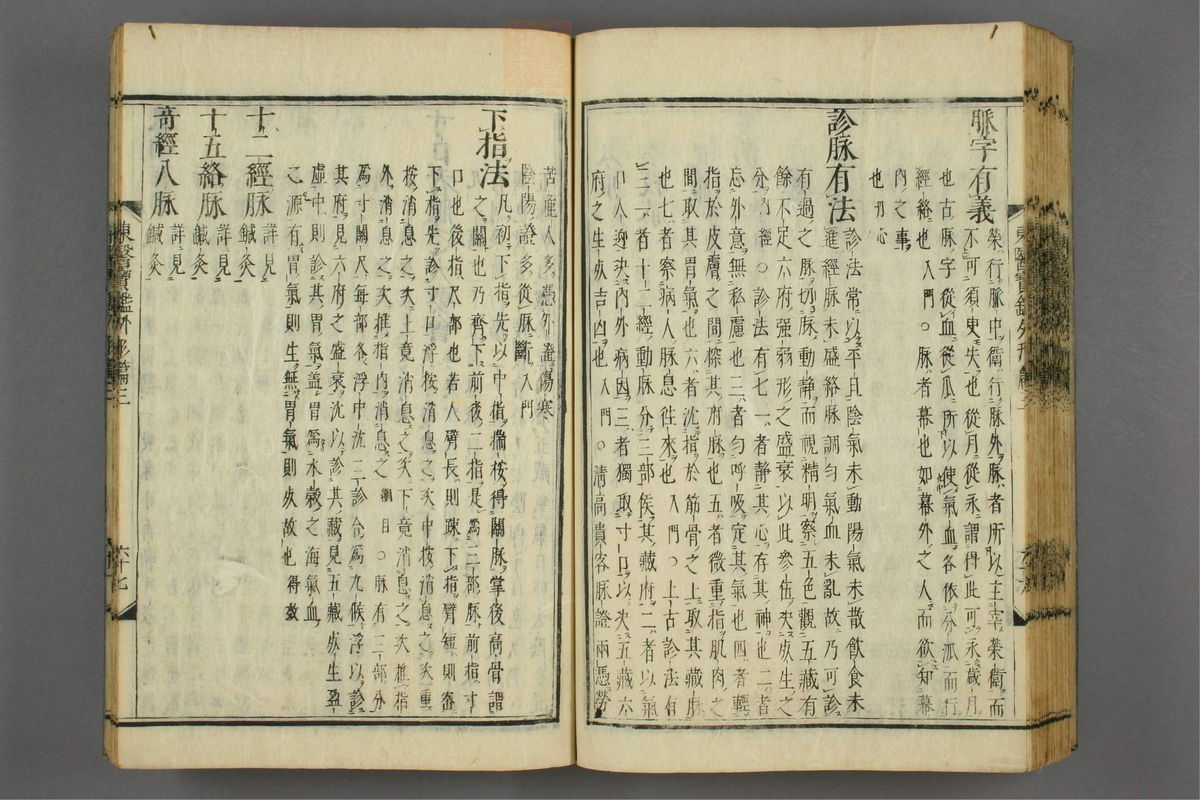 脈字有義
榮行脈中衛行脈外脈者所以主宰榮衛而
不可須臾失也從月從永謂得此可永歲月
也古脈字從血從𠂢所以使氣血各依分𠂢而行
經絡也入門○脈者幕也如幕外之人而欲知幕
內之事
也切心
診脈有法
診法常以平旦陰氣未動陽氣未散飲食未
進經脈未盛絡脈調勻氣血未亂故乃可診
有過之脈切脈動靜而視精明察五色觀五藏有
餘不足六府強弱形之盛衰以此參伍決死生之
分內經○診法有七一者靜其心存其神也二者
忘外意無私慮也三者勻呼吸定其氣也四者輕
指於皮膚之間探其府脈也五者微重指肌肉之
間取其胃氣也六者沈指於筋骨之上取其藏脈
也七者察病人脈息往來也入門○上古診法有
三一者十二經動脈分三部候其藏府二者以氣
口人迎決內外病因三者獨取寸口以決五藏六
府之生死吉凶也入門○清高貴客脈證兩憑勞
苦種人多憑外證傷寒
陰陽證多從脈斷入門
下指法
凡初下指先以中指揣按得關脈掌後高骨謂
之關也乃齊下前後二指是爲三部脈前指寸
口也後指尺部也若人臂長則疎下指臂短則密
下指先診寸口浮按消息之次中按消息之次重
按消息之次上竟消息之次下竟消息之次推指
外消息之次推指內消息之綱目○脈有三部分
爲寸關尺每部各浮中沈三診合爲九候浮以診
其府見六府之盛衰沈以診其藏見五藏死生盈
虛中則診其胃氣盖胃爲水穀之海氣血
之源有胃氣則生無胃氣則死故也得效
十二經脈
詳見
鍼灸
十五絡脈
詳見
鍼灸
奇經八脈
詳見
鍼灸
東醫寶鑑外形篇三
六十七